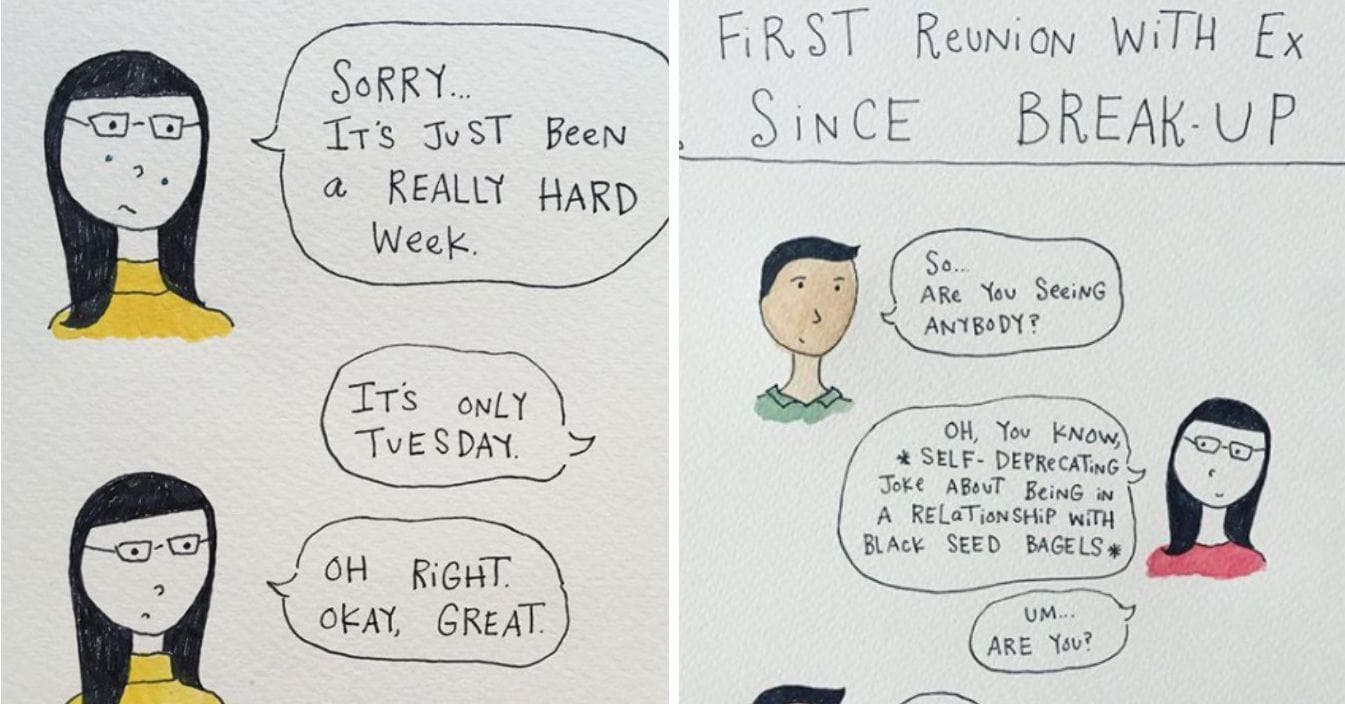 SORRY...
IT'S JUST BEEN
a REALLY HARD
Week.
IT'S ONLY
TUESDAY.
OH RIGHT.
OKAY, GREAT.
FiRST ReUNiON WiTH Ex
SiNCE BREAK-UP
So...
ARe You SeeiNG
ANYBODY?
OH, You KNOW,
* SELF-DEPReCATiNG
JoKe ABouT BeiNG iN
A RELaTiONSHiP WiTH
BLACK SEED BAGELS *
UM...
ARE You?